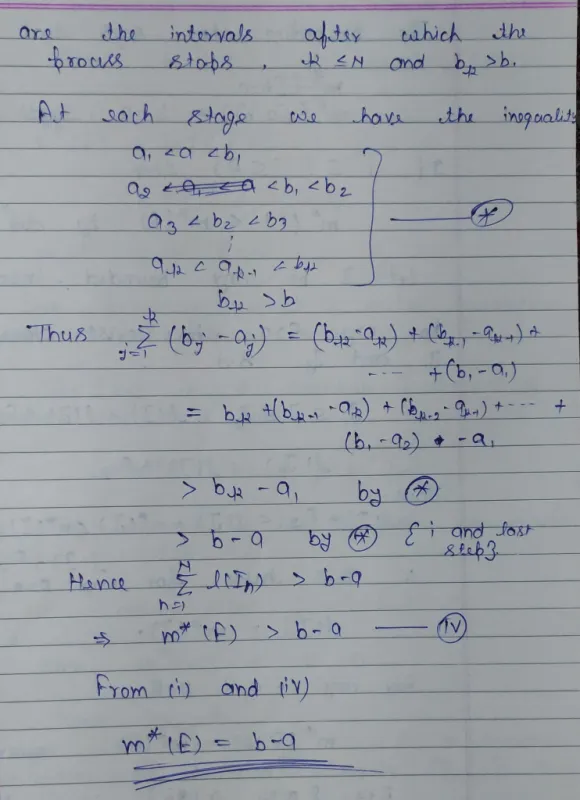 are the intervals after which the
process stops, k ≤ N and bₖ > b.
At each stage we have the inequality
a₁ < a < b₁
a₂ < b₁ < b₂
a₃ < b₂ < b₃
⋮
aₖ < aₖ₋₁ < bₖ
bₖ > b
Thus ∑ⱼ₌₁ᵏ (bⱼ - aⱼ) = (bₖ - aₖ) + (bₖ₋₁ - aₖ₋₁) +
---- + (b₁ - a₁)
= bₖ + (bₖ₋₁ - aₖ) + (bₖ₋₂ - aₖ₋₁) + --- +
(b₁ - a₂) - a₁
> bₖ - a₁ by ⊛
> b - a by ⊛ { i and last
step}
Hence ∑ₙ₌₁ᴺ l(Iₙ) > b-a
⇒ m*(E) > b-a —— (iv)
From (i) and (iv)
m*(E) = b-a